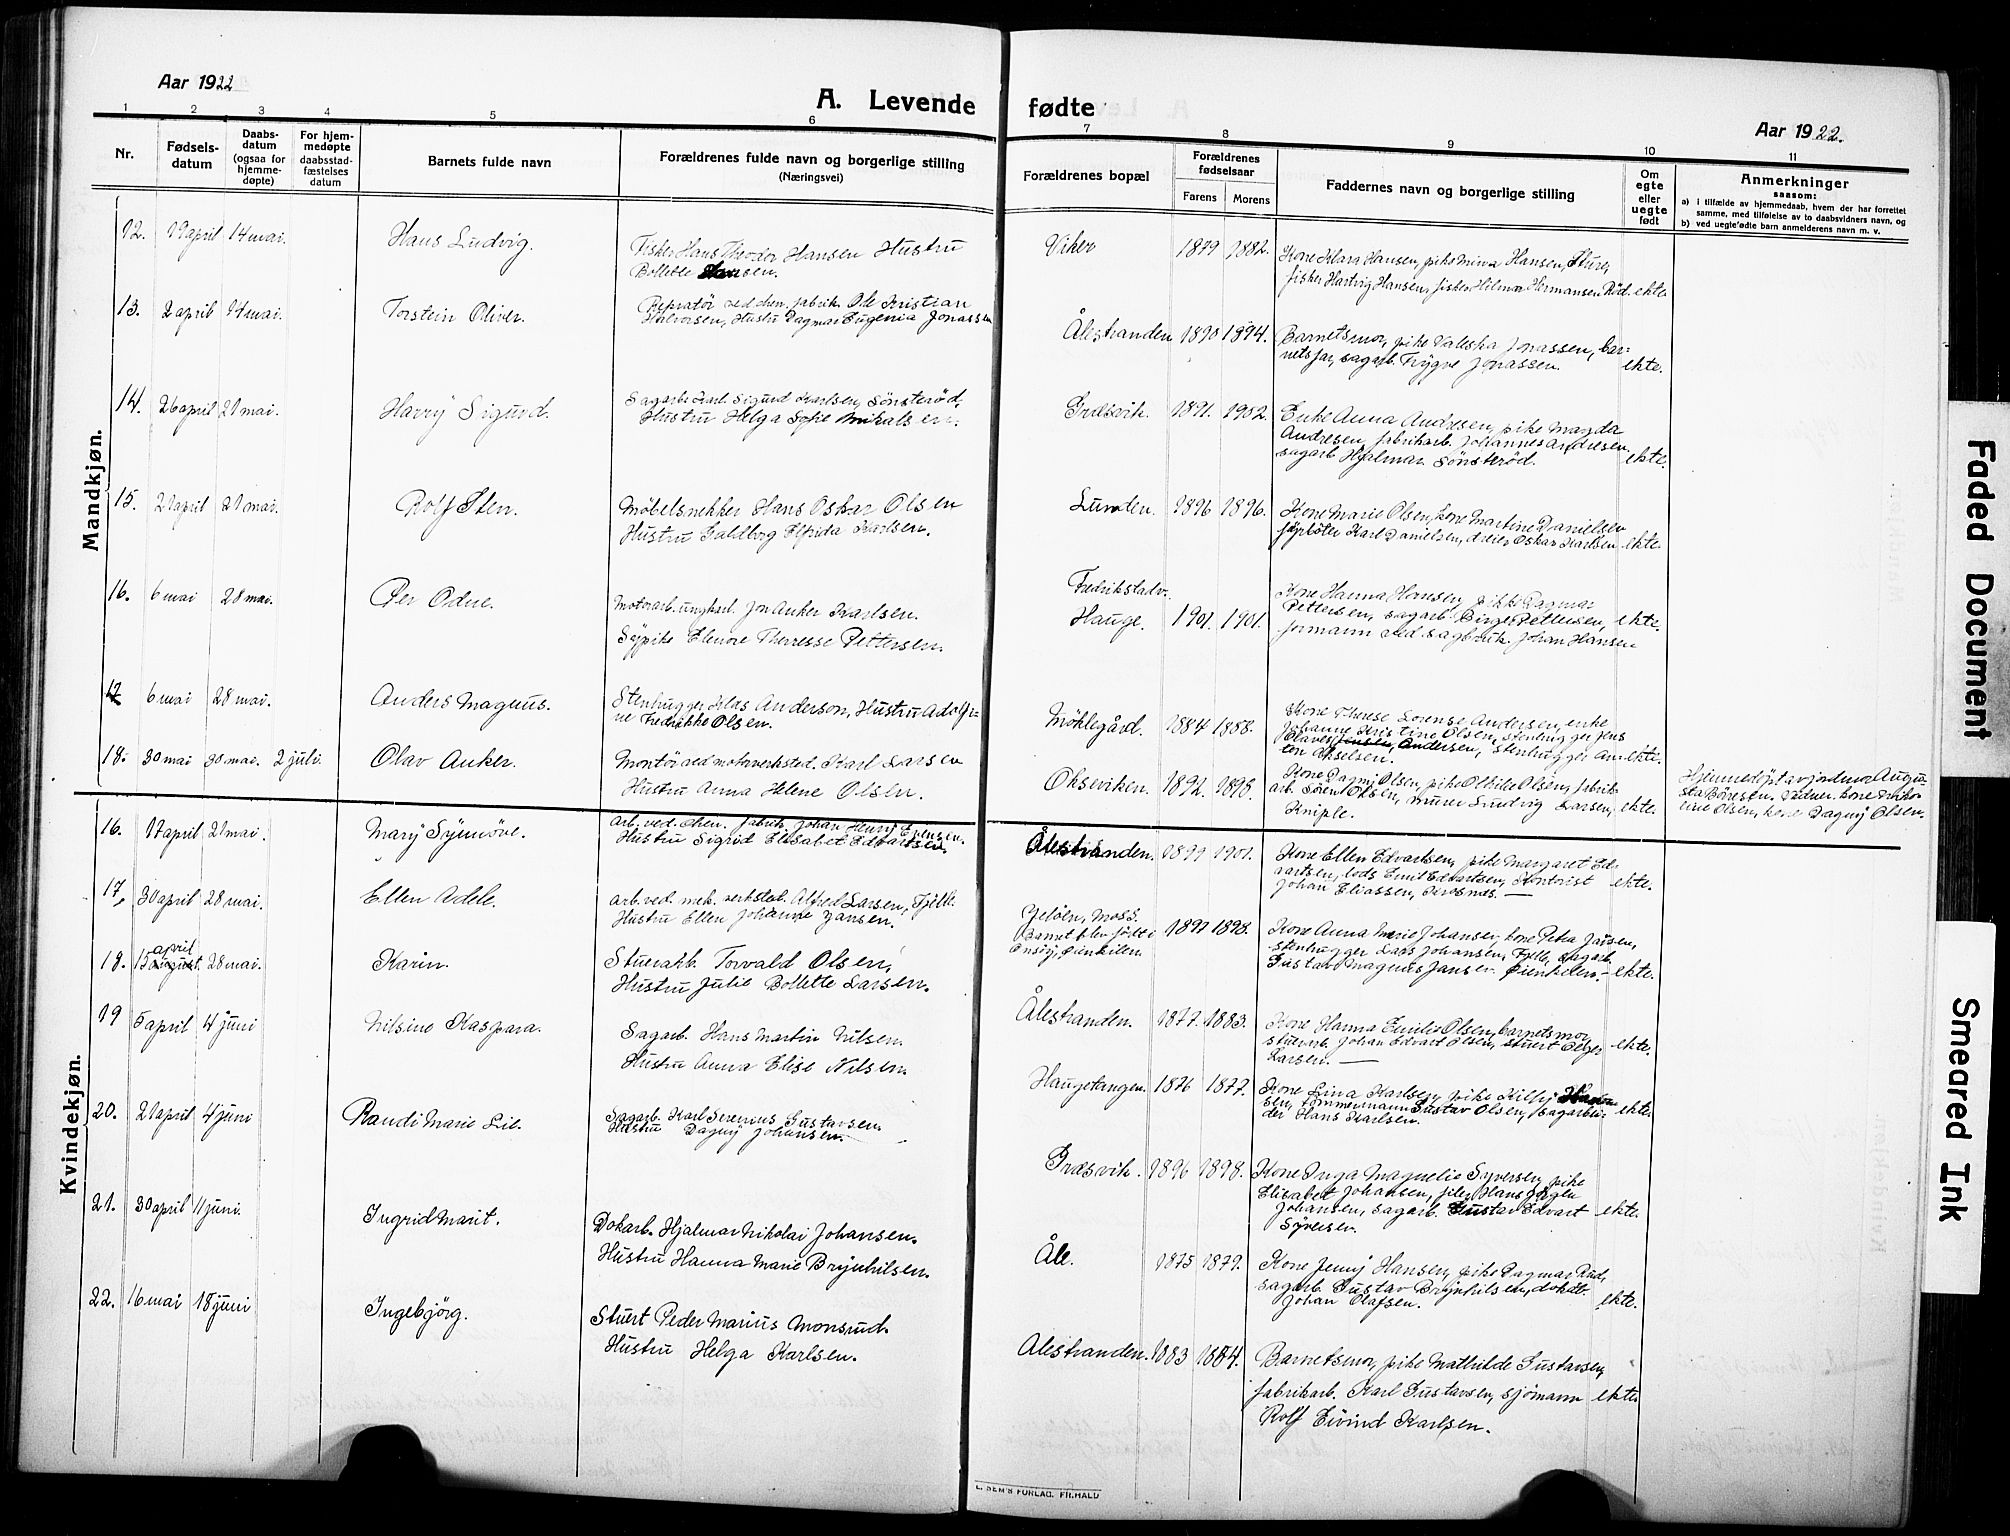 Aar 1922
A. Levende fødte
Aar 1922.
1 2 3 4 5 6 7 8 9 10 11
Nr.
Fødsels-
datum
Daabs-
datum
(ogsaa for
hjemme-
døpte)
For hjem-
medøpte
daabsstad-
fæstelses
datum
Barnets fulde navn
Forældrenes fulde navn og borgerlige stilling
(Næringsvei)
Forældrenes bopæl
Forældrenes
fødselsaar
Farens Morens
Faddernes navn og borgerlige stilling
Om
egte
eller
uegte
født
Anmerkninger
saasom:
a) i tilfælde av hjemmedaab, hvem der har forrettet
samme, med tilføielse av to daabsvidners navn, og
b) ved uegte fødte barn anmelderens navn m. v.
Mandkjøn.
12. 19 april 14 mai. Hans Ludvig.
Fisker Hans Theodor Hansen Hustru
Bollette Hansen.
Viker 1879 1882.
Kone Klara Hansen, pike Minna Hansen,
fisker Hartvig Hansen, fisker Hilmar Hermansen Rød. ekte.
13. 2 april 14 mai. Torstein Oliver.
Repratør ved chem. fabrik Ole Kristian
Halvorsen, Hustru Dagmar Eugenia Jonassen
Ålestranden 1890 1894.
Barnetsmor, pike Valeska Jonassen, bar-
netsfar, sagarb. Trygve Jonassen. ekte.
14. 26 april 21 mai. Harry Sigurd.
Sagarb. Karl Sigurd Karlsen, Sønsterød,
Hustru Helga Sofie Mikalsen.
Græsvik. 1891. 1902.
Enke Anna Andresen, pike Magda
Andresen, fabrikarb. Johannes Andresen,
sagarb Hjalmar Sønsterød. ekte.
15. 21 april 21 mai. Rolf Sten.
Møbelsnekker Hans Oskar Olsen
Hustru Valborg Elfrida Karlsen.
Lunden. 1896 1896.
Kone Marie Olsen, kone Martine Danielsen
Karl Danielsen, dreier Oskar Karlsen ekte.
16. 6 mai 28 mai. Per Odne.
Motorarb. ungkarl. Jon Anker Karlsen.
Sypike Elenore Therresse Pettersen.
Fredrikstadv.
Hauge. 1901. 1901.
Kone Hanna Hansen, pike Dagmar
Pettersen, sagarb. Birger Pettersen, ekte.
formann ved sagbruk. Johan Hansen
17 6 mai 28 mai. Anders Magnus.
Stenhugger Klas Anderson, Hustru Adolfi-
ne Fredrikke Olsen.
Møklegård. 1884 1888.
Kone Therese Lorense Andersen, enke
Johanne Kristine Olsen, stenhugger Jens
Olaves Jensen, Andersen, stenhugger An- ekte.
ton Akselsen.
18. 30 mai 30 mai. 2 juli. Olav Anker.
Montør ved motorverksted. Karl Larsen
Hustru Anna Helene Olsen.
Okseviken. 1892. 1895.
Kone Dagny Olsen, pike Othilie Olsen, fabrik-
arb. Sören Olsen, murer Ludvig Larsen, ekte.
Kniple.
Hjemmedöpt av jordmor Augu-
sta Børesen. Vidner. kone
Olsen, kone Dagny Olsen.
Kvindekjøn.
16. 17 april 21 mai. Mary Synnöve.
arb. ved. chem. fabrik Johan Henry Evensen.
Hustru Sigrid Elisabet Edvartsen.
Ålestranden. 1899 1901.
Kone Ellen Edvartsen, pike Margaret Ed-
vartsen, lods Emil Edvartsen, Kontorist ekte.
Johan Eliassen,
17. 30 april 28 mai. Ellen Adele.
arb. ved. mek. verksted. Alfred Larsen, Fjelle.
Hustru Ellen Johanne Jansen.
Jelöen, Moss.
Barnet blev født i
Onsöy, Øienkilen. 1897 1898.
Kone Anna Marie Johansen, kone Petra Jansen,
stenhugger Lars Johansen, Fjelle, sagarb.
Gustav Magnus Jansen Øienkilen. — ekte.
18. 15 april august. 28 mai. Karin.
Stuerarb. Torvald Olsen,
Hustru Julie Bollette Larsen.
Ålestranden. 1877. 1883.
Kone Hanna Emilie Olsen, barnetsmor,
stuerarb. Johan Edvart Olsen, stuert Olger ekte.
Larsen. —
19 5 april 4 juni Nilsine Kaspara.
Sagarb. Hans Martin Nilsen.
Hustru Anna Elise Nilsen.
Haugetangen. 1876 1877.
Kone Lina Karlsen, pike Killy Han-
sen, tømmermann Gustav Olsen, sagarbei- ekte.
der Hans Karlsen.
20. 21 april 4 juni Randi Marie Lil.
Sagarb. Karl Severinus Gustavsen.
Hustru Dagny Johansen.
Græsvik. 1896 1898.
Kone Inga Magnelie Syversen, pike
Elisabet Johansen, filer Hans Jörgen
Johansen, sagarb. Gustav Edvart ekte.
Syversen.
21. 30 april 11 juni. Ingrid Marit.
Dokarb. Hjalmar Nikolai Johansen.
Hustru Hanna Marie Brynhilsen.
Åle. 1875 1879.
Kone Jenny Hansen, pike Dagmar Rud,
sagarb. Gustav Brynhilsen, dokarb.
Johan Olafsen. ekte.
22. 16 mai 18 juni Ingebjörg.
Stuert Peder Marius Monsrud.
Hustru Helga Karlsen.
Alestranden. 1883 1884.
Barnetsmor, pike Mathilde Gustavsen,
fabrikarb. Karl Gustavsen, sjömann ekte.
Rolf Eivind Karlsen.
E. SEM'S FORLAG. FR.HALD
Faded Document
Smeared Ink